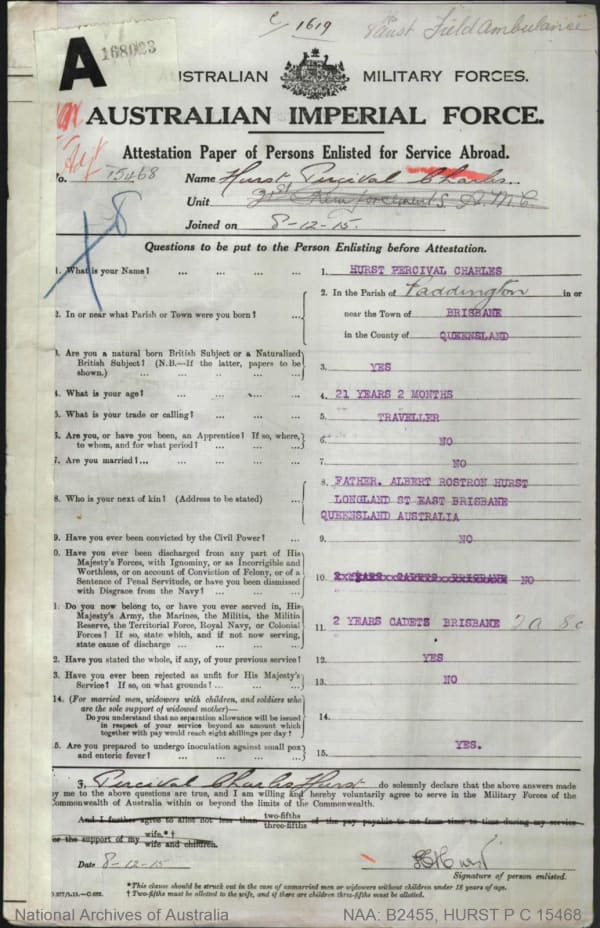 1619
Field Ambulance
A 168023
AUSTRALIAN MILITARY FORCES.
AUSTRALIAN IMPERIAL FORCE.
Attestation Paper of Persons Enlisted for Service Abroad.
No. 15468 Name Hurst Percival Charles.
Unit Reinforcements A.M.C.
Joined on 8-12-15.
Questions to be put to the Person Enlisting before Attestation.
1. What is your Name? ... ... ... ... 1. HURST PERCIVAL CHARLES
2. In the Parish of Paddington in or
2. In or near what Parish or Town were you born? ... near the Town of BRISBANE
in the County of QUEENSLAND
3. Are you a natural born British Subject or a Naturalized
British Subject? (N.B.—If the latter, papers to be
shown.) ... 3. YES
4. What is your age? ... 4. 21 YEARS 2 MONTHS
5. What is your trade or calling? ... 5. TRAVELLER
6. Are you, or have you been, an Apprentice? If so, where,
to whom, and for what period? ... 6. NO
7. Are you married?... ... 7. NO
8. FATHER. ALBERT ROSTRON HURST
8. Who is your next of kin? (Address to be stated) ... LONGLAND ST EAST BRISBANE
QUEENSLAND AUSTRALIA
9. Have you ever been convicted by the Civil Power? ... 9. NO
0. Have you ever been discharged from any part of His
Majesty's Forces, with Ignominy, or as Incorrigible and
Worthless, or on account of Conviction of Felony, or of a
Sentence of Penal Servitude, or have you been dismissed
with Disgrace from the Navy? ... 10. 2 YEARS CADETS BRISBANE NO
1. Do you now belong to, or have you ever served in, His
Majesty's Army, the Marines, the Militia, the Militia
Reserve, the Territorial Force, Royal Navy, or Colonial
Forces? If so, state which, and if not now serving,
state cause of discharge ... 11. 2 YEARS CADETS BRISBANE
2. Have you stated the whole, if any, of your previous service? 12. YES
3. Have you ever been rejected as unfit for His Majesty's
Service? If so, on what grounds? ... 13. NO
14. (For married men, widowers with children, and soldiers who
are the sole support of widowed mother)—
Do you understand that no separation allowance will be issued
in respect of your service beyond an amount which
together with pay would reach eight shillings per day? 14.
5. Are you prepared to undergo inoculation against small pox
and enteric fever? ... 15. YES.
I, Percival Charles Hurst do solemnly declare that the above answers made
by me to the above questions are true, and I am willing and hereby voluntarily agree to serve in the Military Forces of the
Commonwealth of Australia within or beyond the limits of the Commonwealth.
And I further agree to allot not less than two-fifths three-fifths of the pay payable to me from time to time during my service
for the support of my wife.*† wife and children.
Date 8-12-15 P C Hurst
Signature of person enlisted.
*This clause should be struck out in the case of unmarried men or widowers without children under 18 years of age.
† Two-fifths must be allotted to the wife, and if there are children three-fifths must be allotted.
National Archives of Australia NAA: B2455, HURST P C 15468